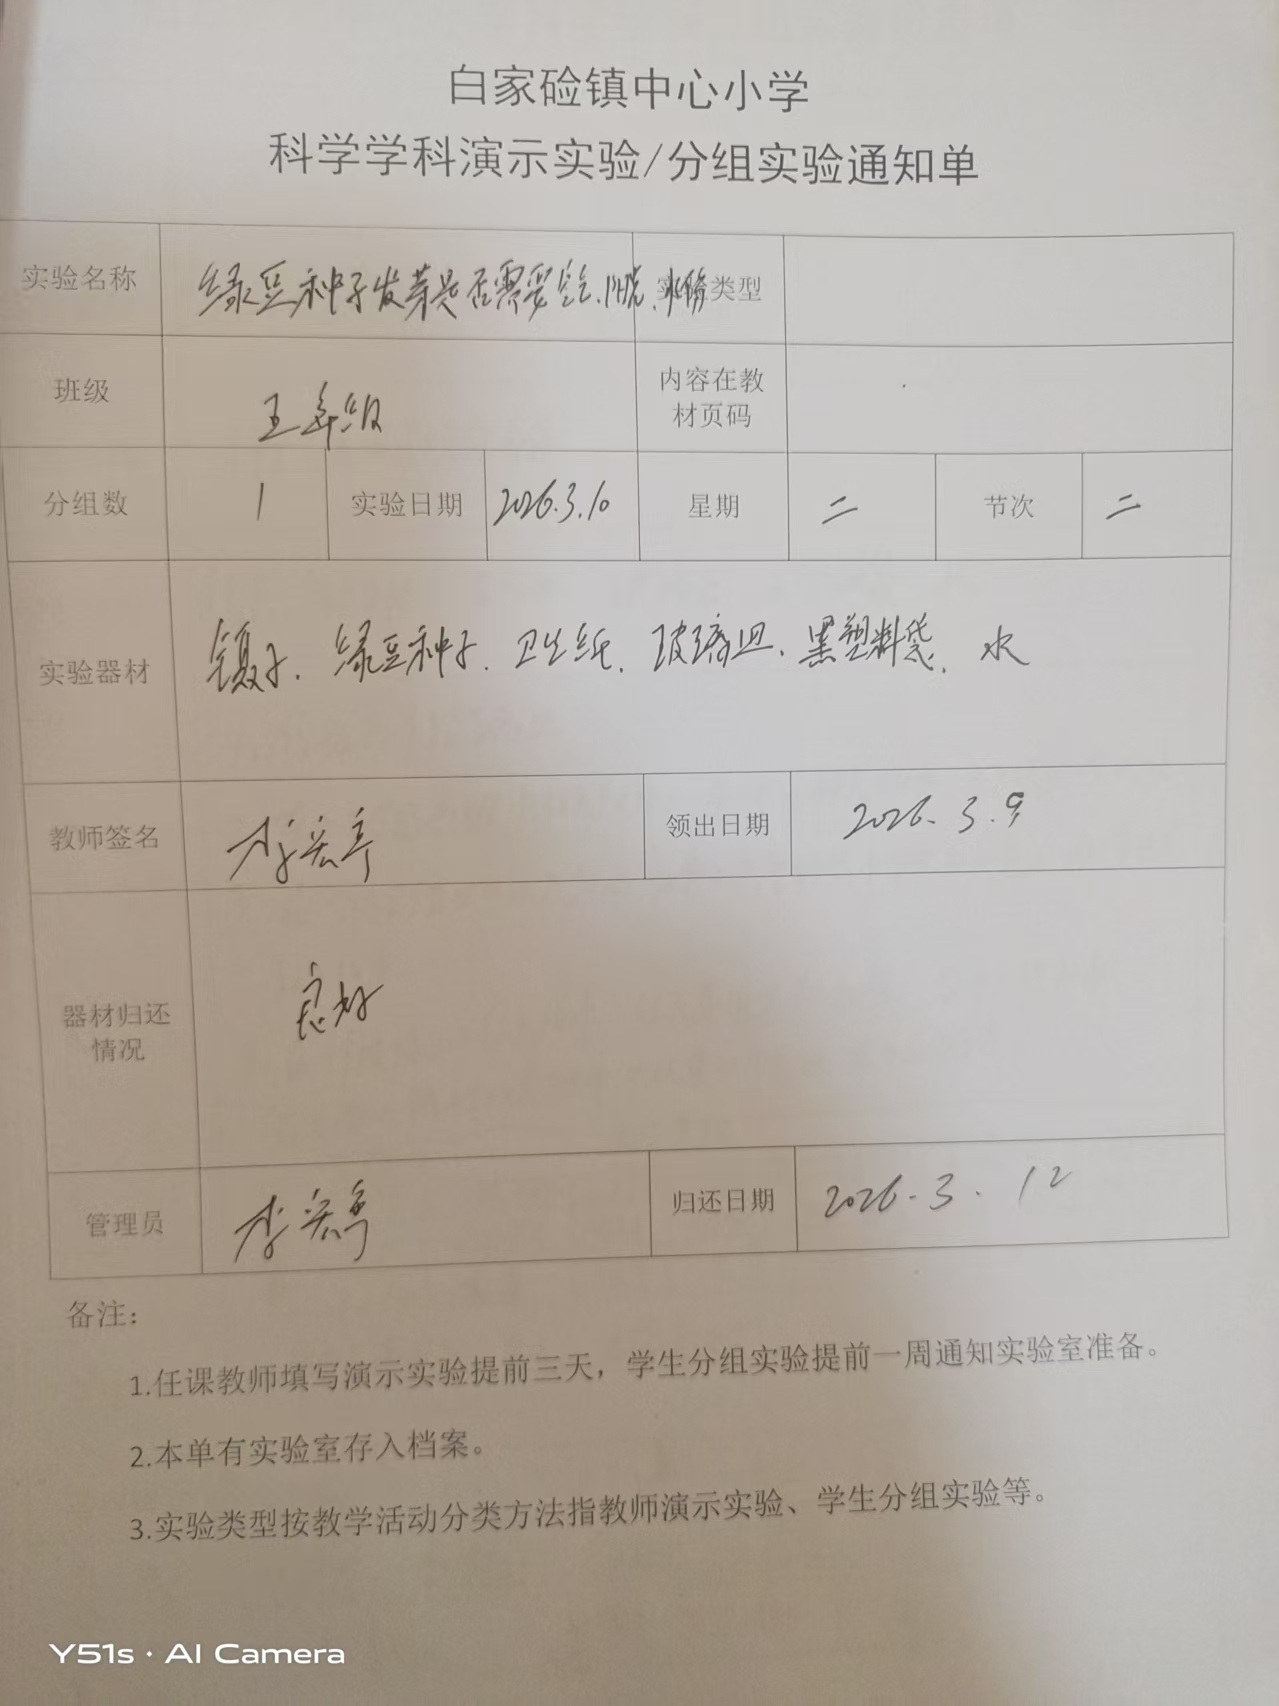 白家硷镇中心小学
科学学科演示实验/分组实验通知单
实验名称 绿豆种子发芽是否需要空气、阳光、水份 实验类型
班级 五年级 内容在教材页码
分组数 1 实验日期 2026.3.10 星期 二 节次 二
实验器材 镊子、绿豆种子、卫生纸、玻璃皿、黑塑料袋、水
教师签名 李宏亭 领出日期 2026.3.9
器材归还情况 良好
管理员 李宏亭 归还日期 2026.3.12
备注：
1.任课教师填写演示实验提前三天，学生分组实验提前一周通知实验室准备。
2.本单有实验室存入档案。
3.实验类型按教学活动分类方法指教师演示实验、学生分组实验等。
Y51s · AI Camera